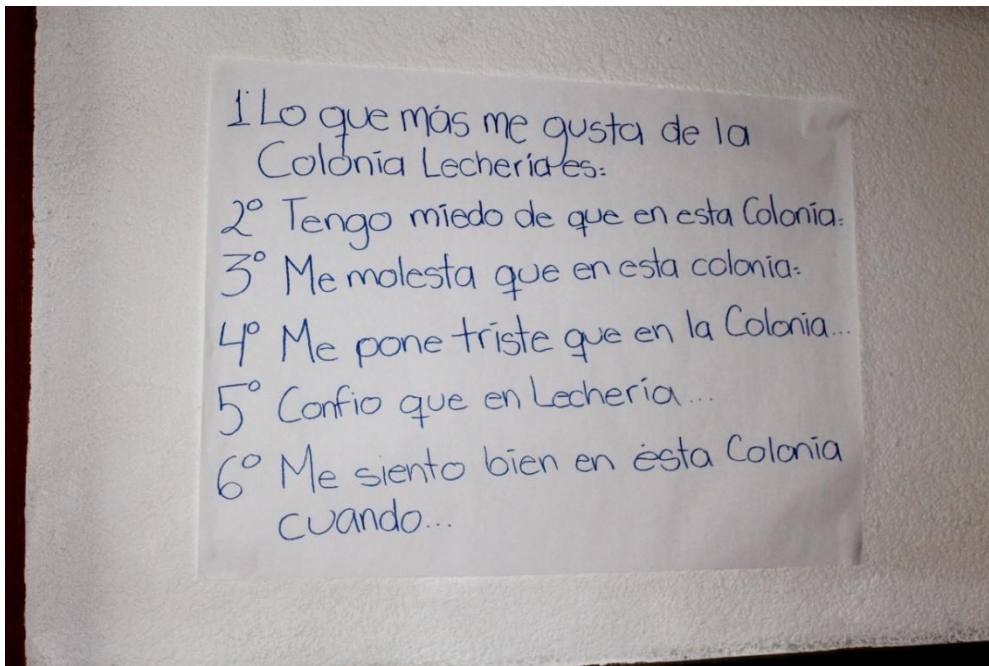 1 Lo que más me gusta de la
Colonia Lechería es:
2° Tengo miedo de que en esta Colonia:
3° Me molesta que en esta colonia:
4° Me pone triste que en la Colonia...
5° Confio que en Lechería...
6° Me siento bien en ésta Colonia
cuando...